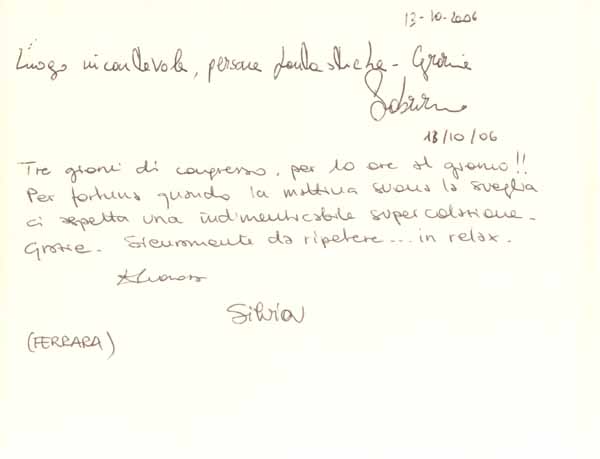 13-10-2006
Luogo incantevole, persone fantastiche - Grazie
Sabrina
13/10/06
Tre giorni di congresso, per 10 ore al giorno!!
Per fortuna quando la mattina suona la sveglia
ci aspetta una indimenticabile super colazione.
Grazie. Sicuramente da ripetere... in relax.
Silvia
(FERRARA)